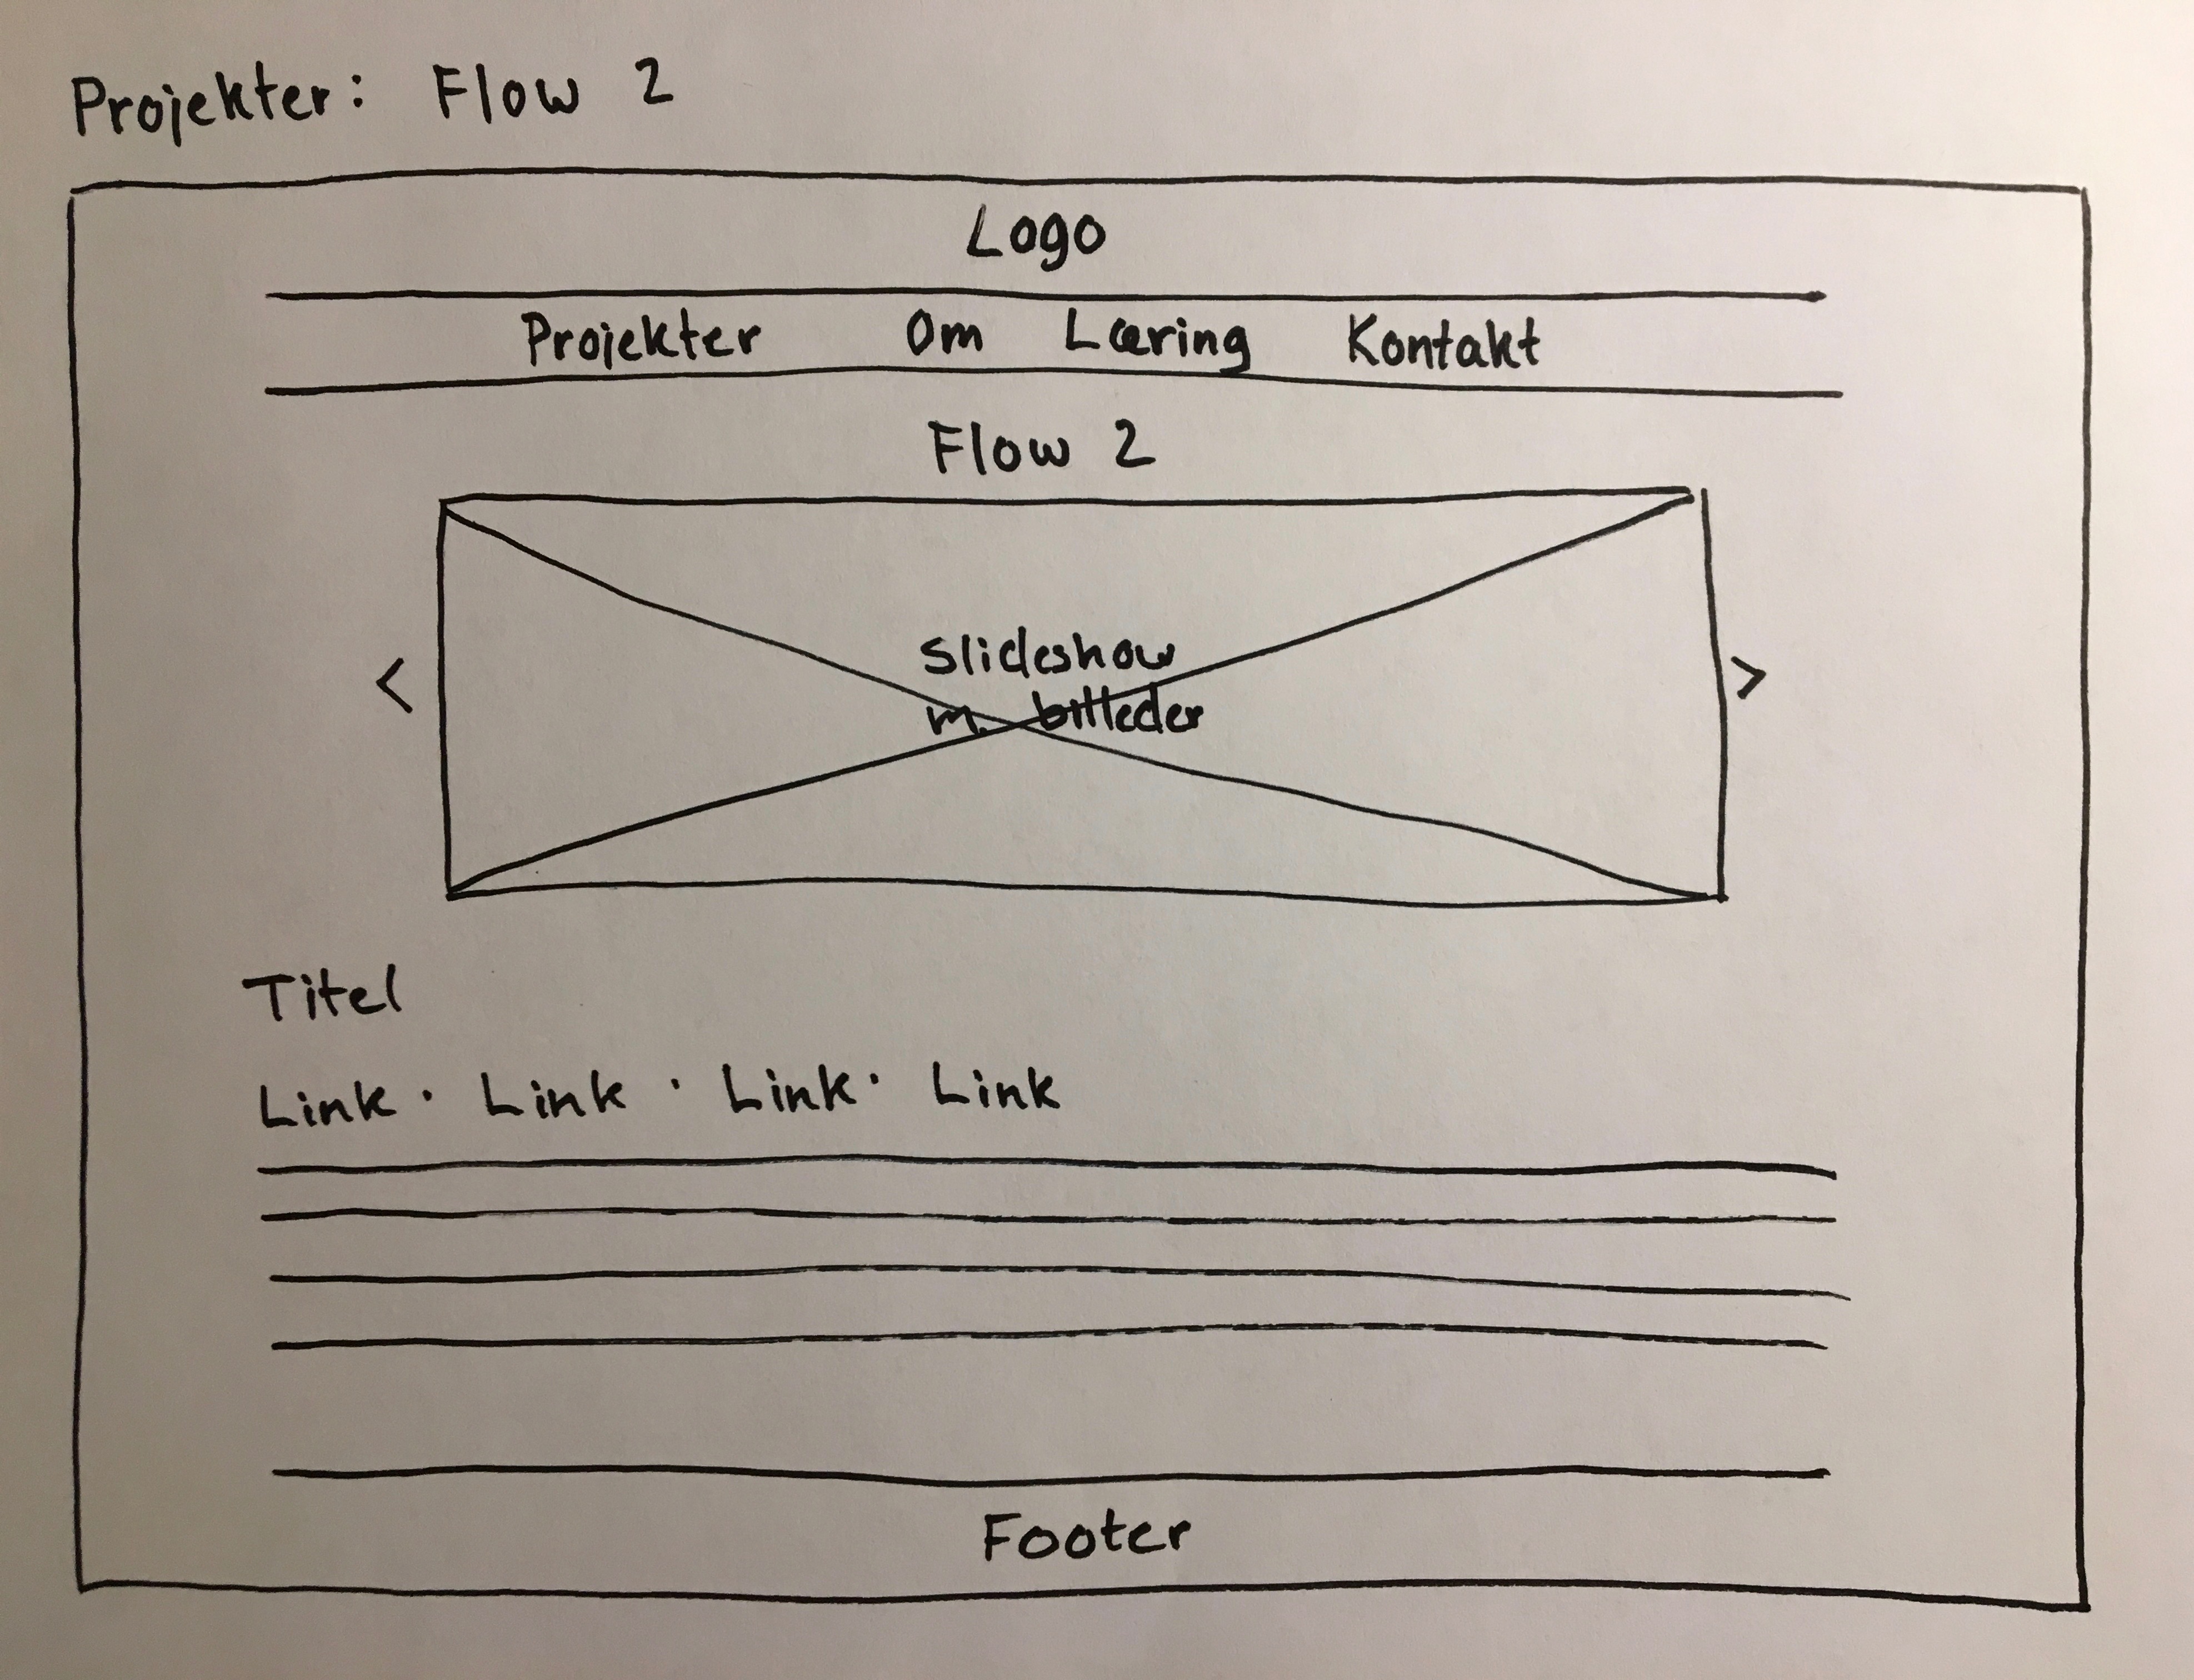 Projekter: Flow 2
Logo
Projekter Om Læring Kontakt
Flow 2
< >
slideshow
m. billeder
Titel
Link · Link · Link · Link
Footer